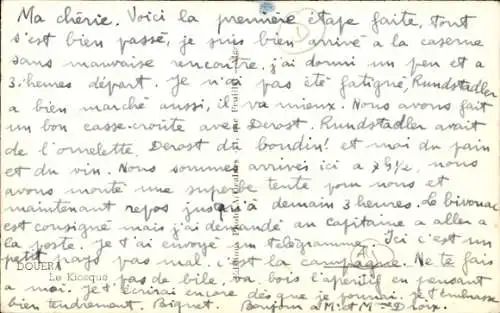 Ma chérie. Voici la première étape faite, tout
s'est bien passé, je suis bien arrivé a la caserne
sans mauvaise rencontre. j'ai dormi un peu et a
3 heures départ. Je n'ai pas été fatigué, Rundstadler
a bien marché aussi, il va mieux. Nous avons fait
un bon casse-croûte avec Derost. Rundstadler avait
de l'omelette, Derost du boudin! et moi du pain
et du vin. Nous sommes arrivés ici a 7 h ½, nous
avons monté une superbe tente pour nous et
maintenant repos jusqu'à demain 3 heures. Le bivouac
est consigné mais j'ai demandé au capitaine a aller a
la poste. Je t'ai envoyé un télégramme. Ici c'est un
petit pays pas mal. c'est la campagne. Ne te fais
DOUERA
Le Kiosque
pas de bile, va bois l'apéritif en pensant
a moi. Je t'écrirai encore dès que je pourrai. Je t'embrasse
bien tendrement. Bonjour a M. et M